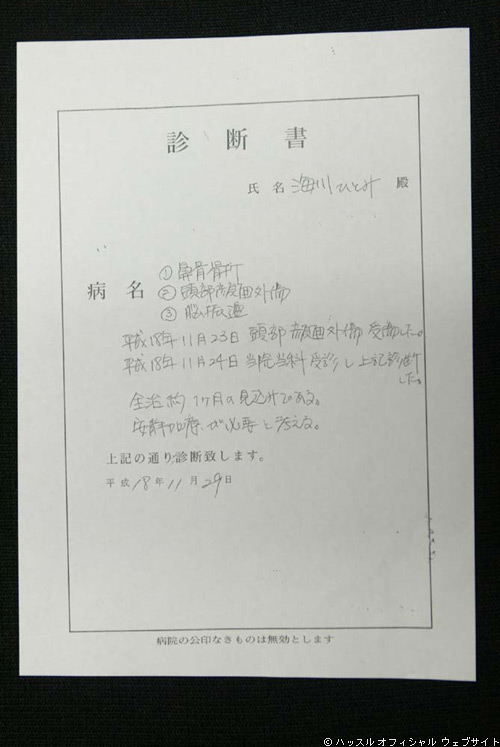 診断書
氏名 海川ひとみ 殿
病名
① 鼻骨骨折
② 頭部顔面外傷
③ 脳振盪
平成18年11月23日 頭部顔面外傷受傷した。
平成18年11月24日 当院当科受診し上記診断した。
全治約1ケ月の見込みである。
安静加療が必要と考える。
上記の通り診断致します。
平成18年11月29日
病院の公印なきものは無効とします
© ハッスル オフィシャル ウェブサイト